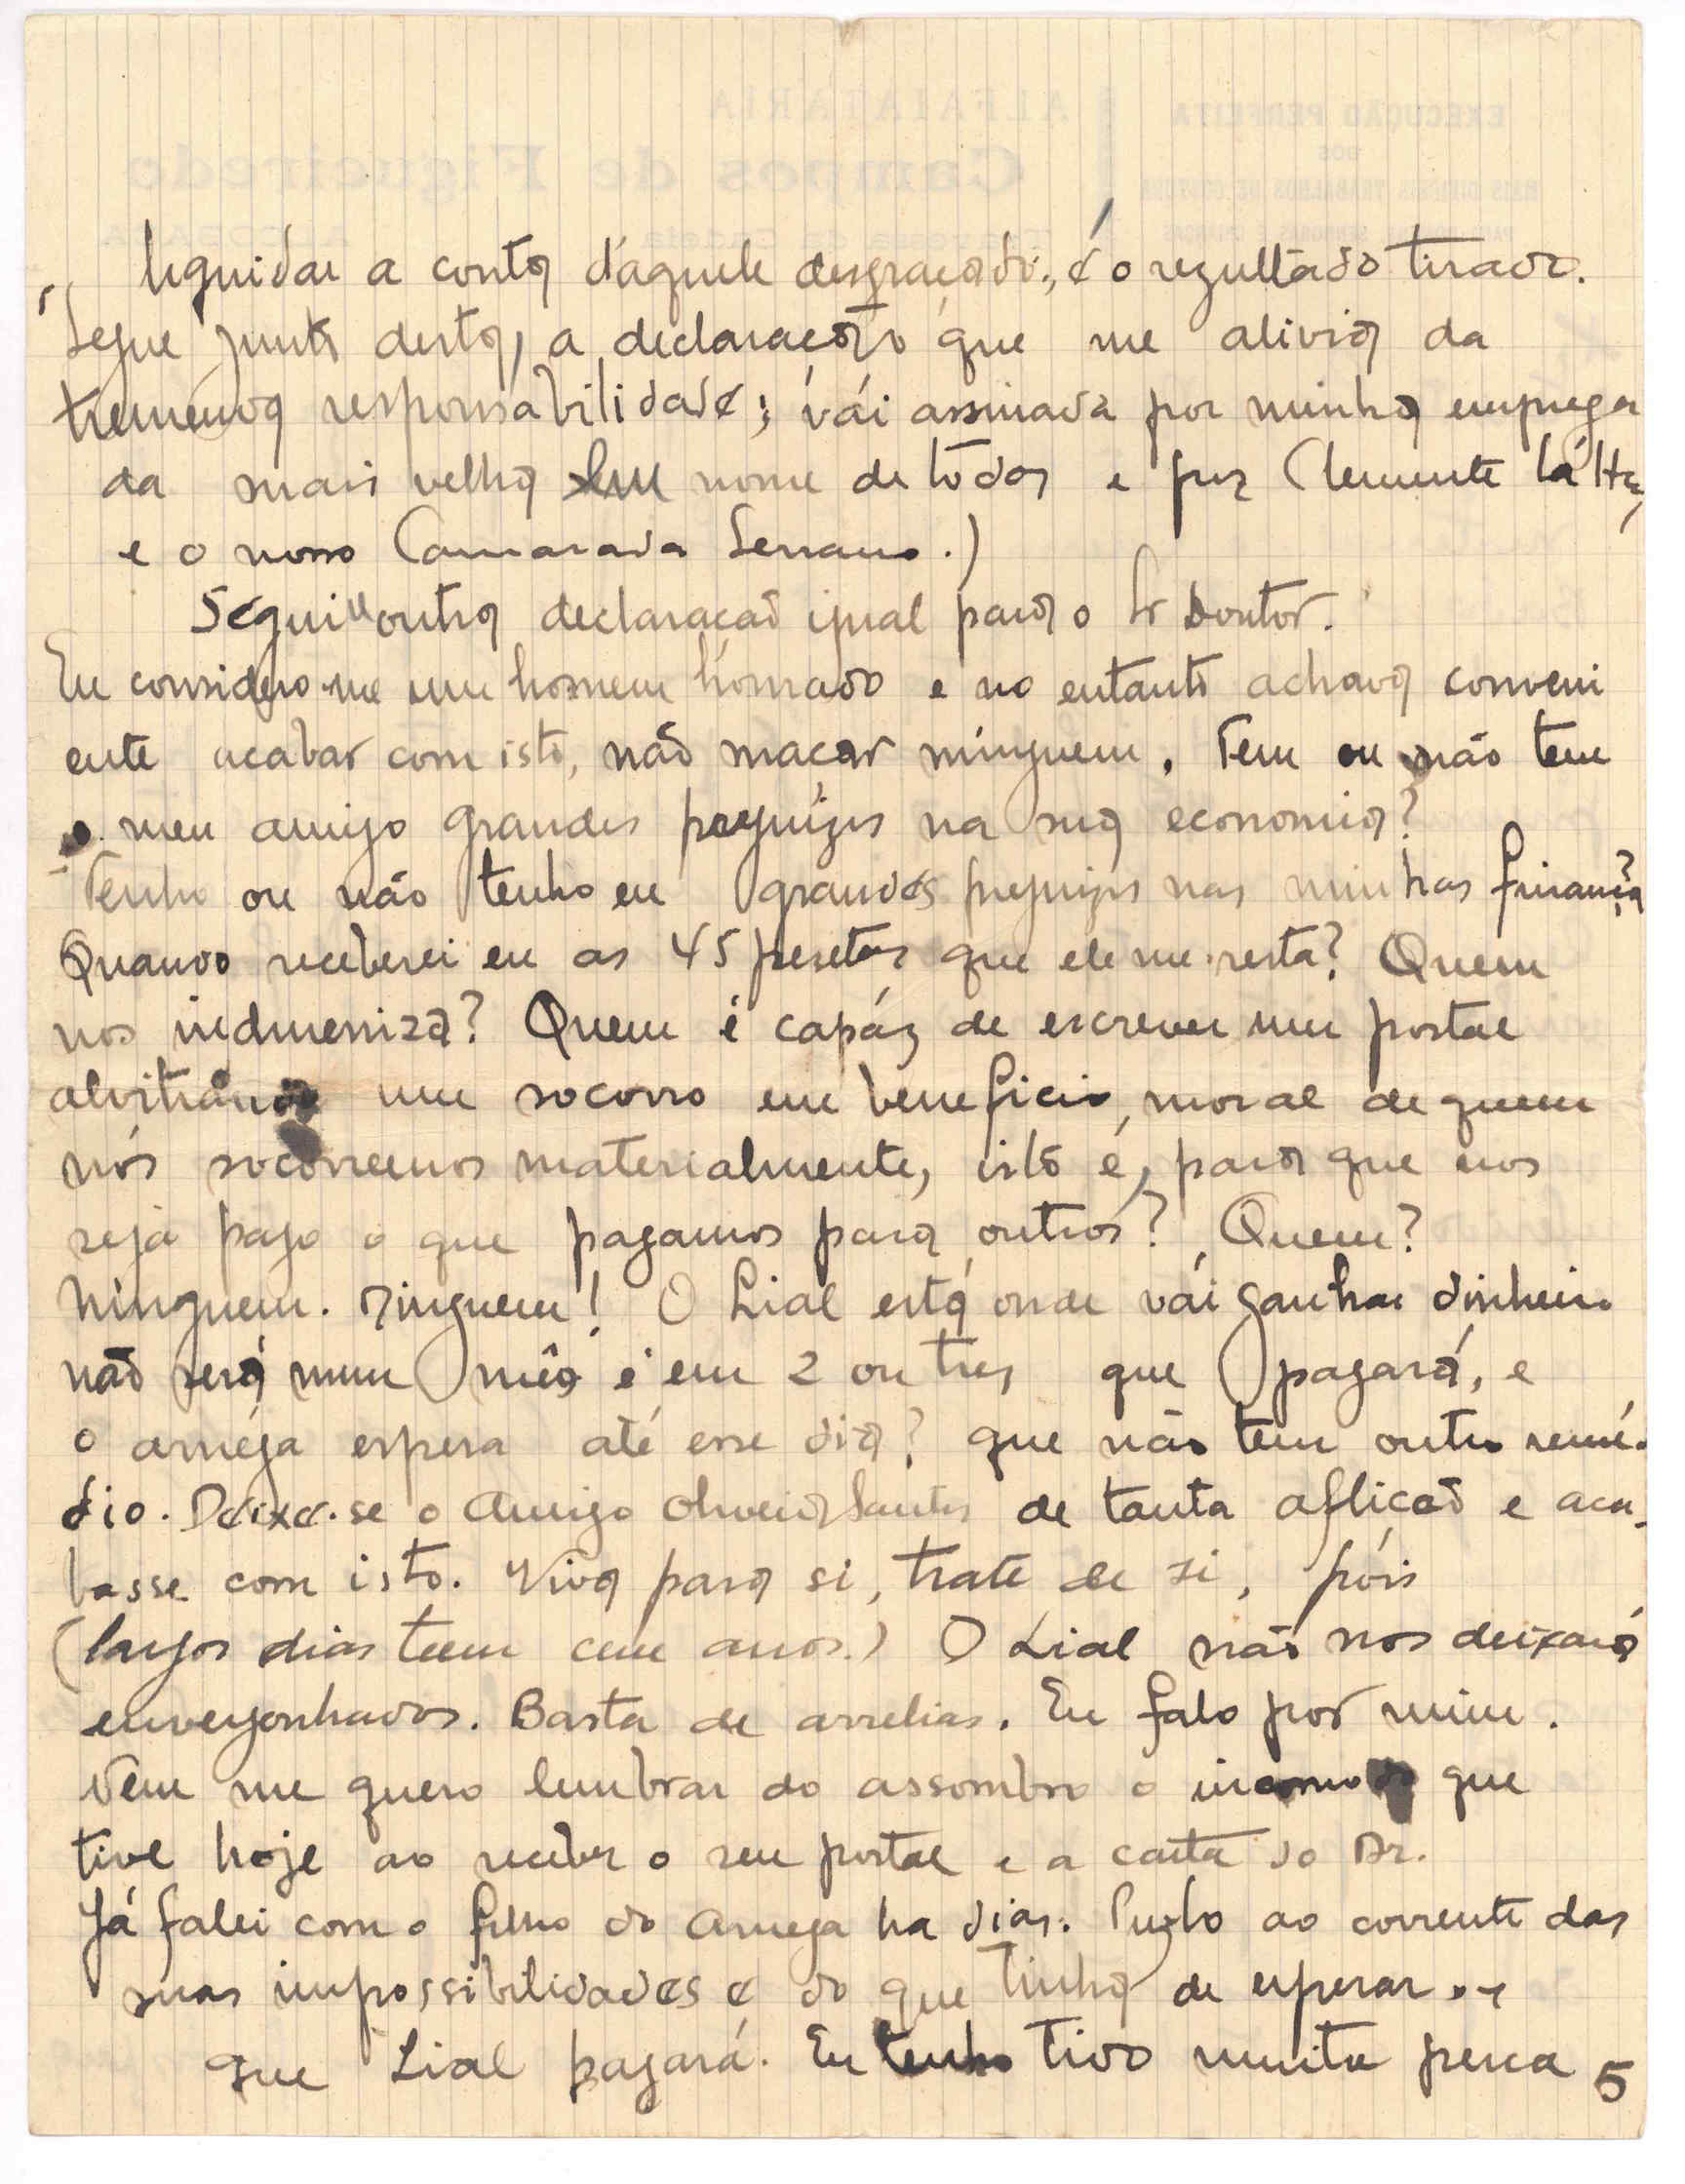 liquidar a conta d'aquele desgraçado, é o rezultado tirado.
Segue junto desta, a declaração que me alivia da
tremenda responsabilidade; vái assinada por minha emprega
da mais velha em nome de todos e por Clemente
e o nosso Camarada Serrano.)
Segui outra declaração igual para o Sr Doutor.
Eu considero-me um homem honrado e no entanto achava conveni
ente acabar com isto, não maçar ninguem. Tem ou não tem
o meu amigo grandes prejuizos na sua economia?
Tenho ou não tenho eu grandes prejuizos nas minhas finança?
Quando receberei eu as 45 pesetas que ele me resta? Quem
nos indmeniza? Quem é capáz de escrever um postal
alvitrando um socorro em beneficio moral de quem
nós socorremos materialmente, isto é, para que nos
seja pago o que pagamos para outros? Quem?
Ninguem. Ninguem! O Lial está onde vái ganhar dinheiro
não será num mês é em 2 ou tres que pagará, e
o améga espera até esse dia? que não tem outro remé-
dio. Deixe-se o Amigo Oliveira Santos de tanta aflição e aca-
basse com isto. Viva para si, trate de si, póis
(largos dias teem cem anos.) O Lial não nos deixará
envergonhados. Basta de arrelias. Eu falo por mim.
Nem me quero lembrar do assombro o incomodo que
tive hoje ao receber o seu postal e a carta do Dr.
Já falei com o filho do Amega ha dias. Puzlo ao corrente das
suas impossibilidades e do que tinha de esperar e
que Lial pagará. Eu tenho tido muita perca 5
EXECUÇÃO PERFEITA
DOS
ALFAIATARIA
Campos de Figueiredo